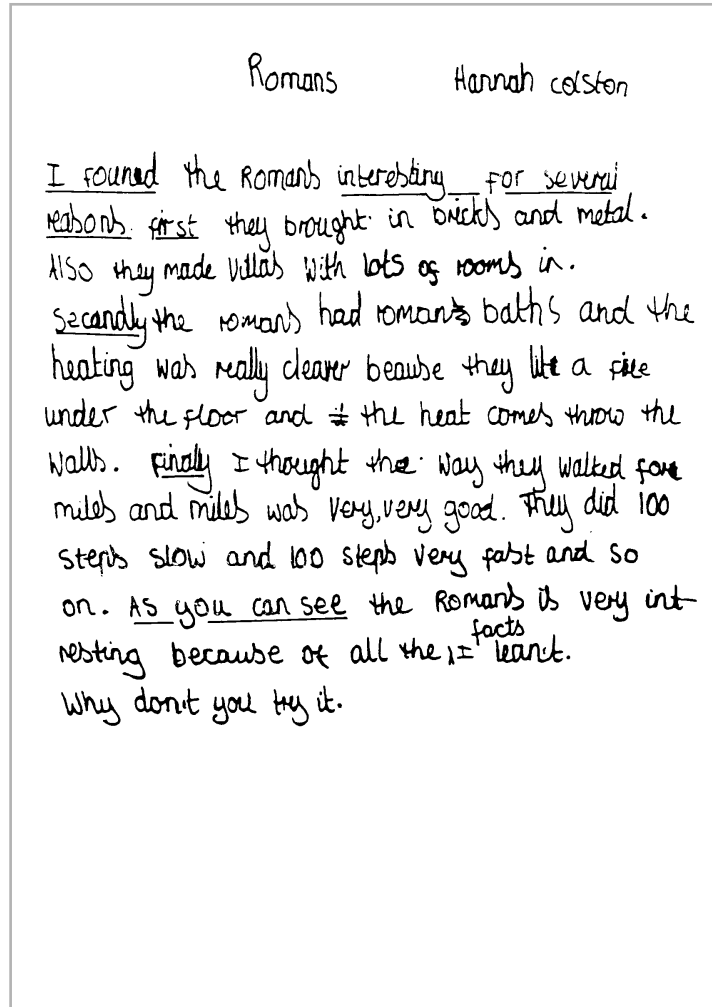 Romans Hannah colston
I founed the Romans interesting for several
reasons first they brought in bricks and metal.
Also they made villas with lots of rooms in.
Secandly the romans had romans baths and the
heating was really claver beause they lit a fire
under the floor and the heat comes throw the
walls. Finaly I thought the way they walked fore
miles and miles was very, very good. They did 100
steps slow and 100 steps very fast and so
on. As you can see the Romans is very int-
resting because of all the facts I leant.
Why don't you try it.